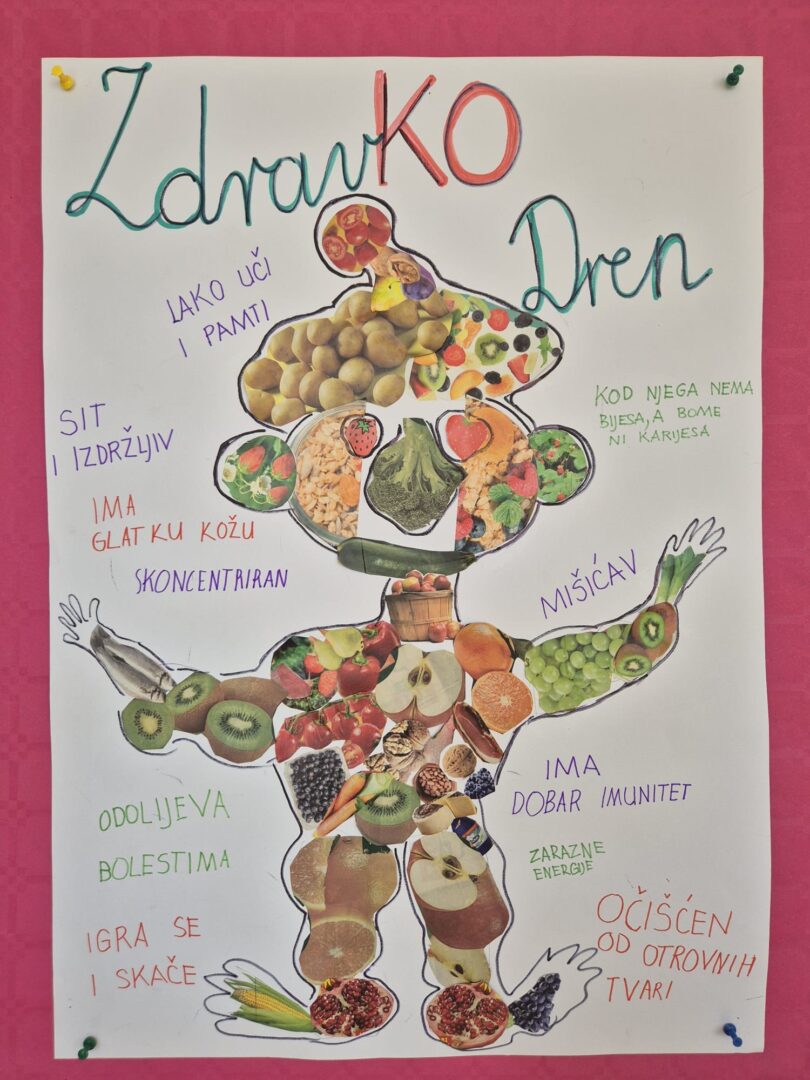 ZdravKO
Dren
LAKO UČI
I PAMTI
KOD NJEGA NEMA
BIJESA, A BOME
NI KARIJESA
SIT
I IZDRŽLJIV
IMA
GLATKU KOŽU
SKONCENTRIRAN
MIŠIĆAV
IMA
DOBAR IMUNITET
ODOLIJEVA
BOLESTIMA
ZARAZNE
ENERGIJE
IGRA SE
I SKAČE
OČIŠĆEN
OD OTROVNIH
TVARI